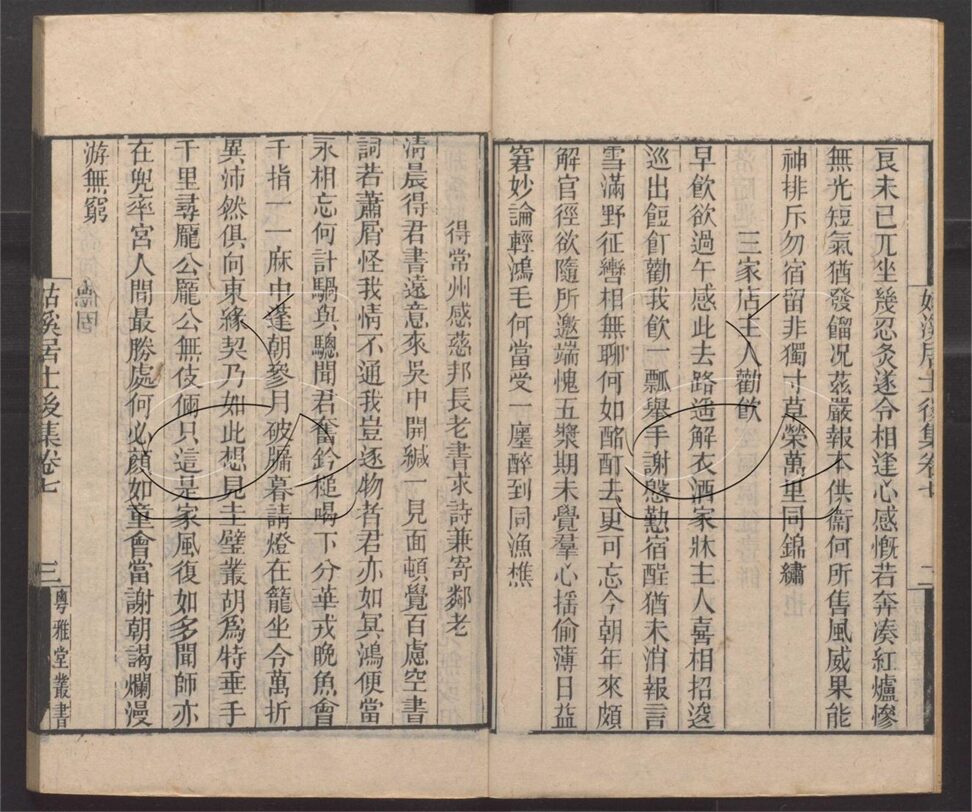 艮未已兀坐幾忍灸遂令相逢心感慨若奔湊紅爐慘
無光短氣猶發餾况茲嚴報本供衞何所售風威果能
神排斥勿宿留非獨寸草榮萬里同錦繡
三家店主人勸飮
早飮欲過午感此去路遥解衣酒家牀主人喜相招逡
巡出饾飣勸我飮一瓢舉手謝慇懃宿酲猶未消報言
雪滿野征轡相無聊何如酩酊去更可忘今朝年來頗
解官徑欲隨所邀端愧五漿期未覺羣心揺偷薄日益
窘妙論輕鴻毛何當受一廛醉到同漁樵
姑溪居士後集卷七
二
得常州感慈邦長老書求詩兼寄鄰老
淸晨得君書遠意來吳中開緘一見面頓覺百慮空書
詞若蕭屑怪我情不通我豈逐物者君亦如冥鴻便當
永相忘何計騧與驄聞君奮鈴槌喝下分華戎晚魚會
千指一一麻中蓬朝參月破牖暮請燈在籠坐令萬折
異沛然俱向東緣契乃如此想見圭璧叢胡爲特垂手
千里尋龐公龐公無伎倆只這是家風復如多聞師亦
在兜率宮人間最勝處何必顔如童會當謝朝謁爛漫
游無窮
姑溪居士後集卷七
三
粵雅堂叢書